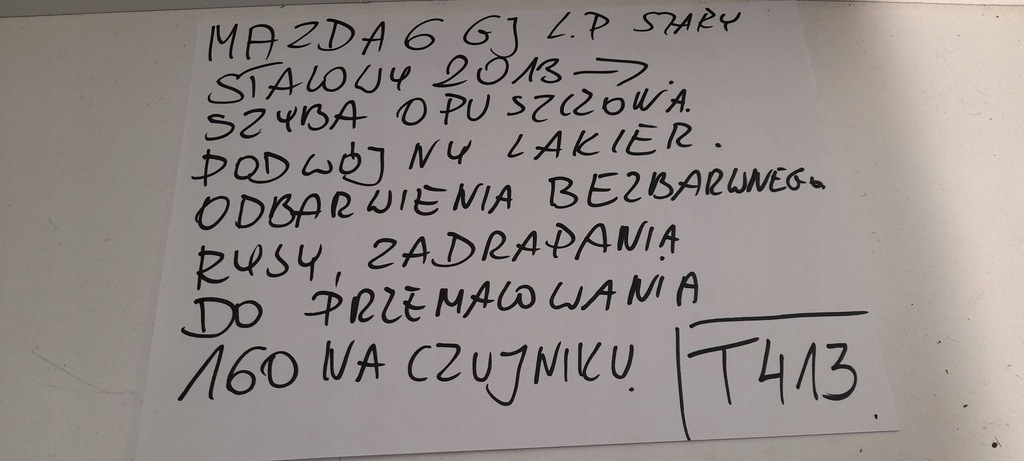 MAZDA 6 GJ L.P SZARY
STALOWY 2013 →.
SZYBA OPUSZCZONA.
PODWÓJNY LAKIER.
ODBARWIENIA BEZBARWNEGO
RYSY, ZADRAPANIA
DO PRZEMALOWANIA
160 NA CZUJNIKU.
T413.